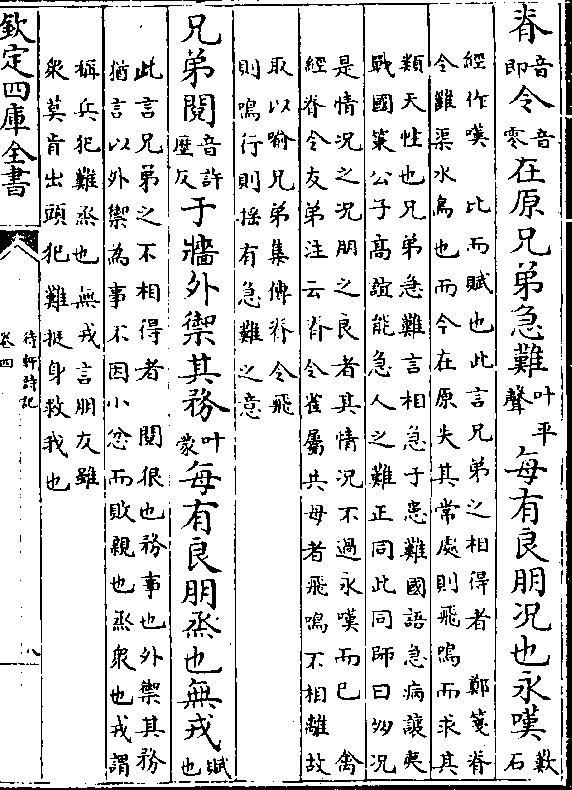 脊音即令音零在原兄弟急難叶平聲每有良朋况也永嘆歎石
經作嘆　比而賦也此言兄弟之相得者　鄭箋脊
令雝渠水鳥也而今在原失其常處則飛鳴而求其
類天性也兄弟急難言相急于患難國語急病讓夷
戰國策公子高誼能急人之難正同此同師曰况
是情况之况朋之良者其情况不過永嘆而已　禽
經脊令友弟注云脊令雀屬共母者飛鳴不相離故
取以喻兄弟集傳脊令飛
則鳴行則揺有急難之意
兄弟鬩音許歷反于牆外禦其務叶蒙每有良朋烝也無戎賦也
此言兄弟之不相得者　鬩很也務事也外禦其務
猶言以外禦為事不因小忿而敗親也烝衆也戎謂
稱兵犯難烝也無戎言朋友雖
衆莫肯出頭犯難挺身救我也
欽定四庫全書
待軒詩記
卷四
八